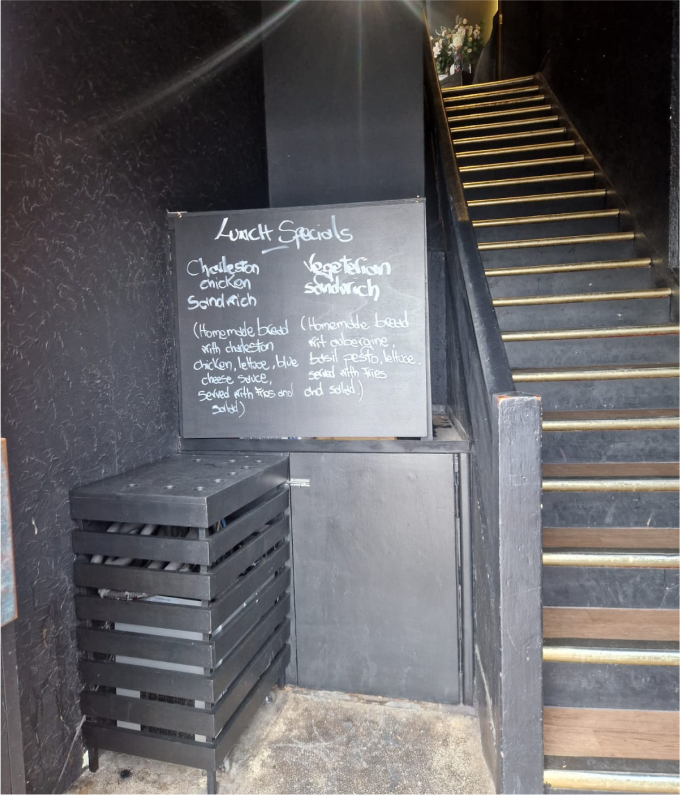 Lunch Specials
Charleston
chicken
Sandwich
(Homemade bread
with charleston
chicken, lettuce, blue
cheese sauce,
served with fries and
salad)
Vegeterian
sandwich
(Homemade bread
wit aubergine,
basil pesto, lettuce.
served with fries
and salad)